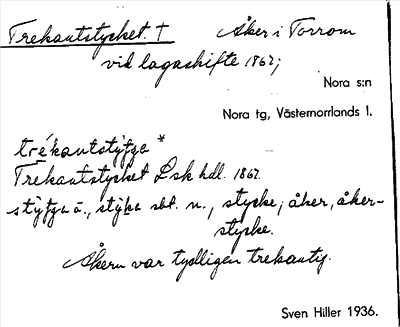 Trekantstycket. † Åker i Torrom
vid lagaskifte 1862;
Nora s:n
Nora tg, Västernorrlands l.
trékantstýtga *
Trekantstycket Lsk hdl. 1862.
stýtga ä., stýka sbt. n., stycke; åker, åker-
stycke.
Åkern var tydligen trekantig.
Sven Hiller 1936.